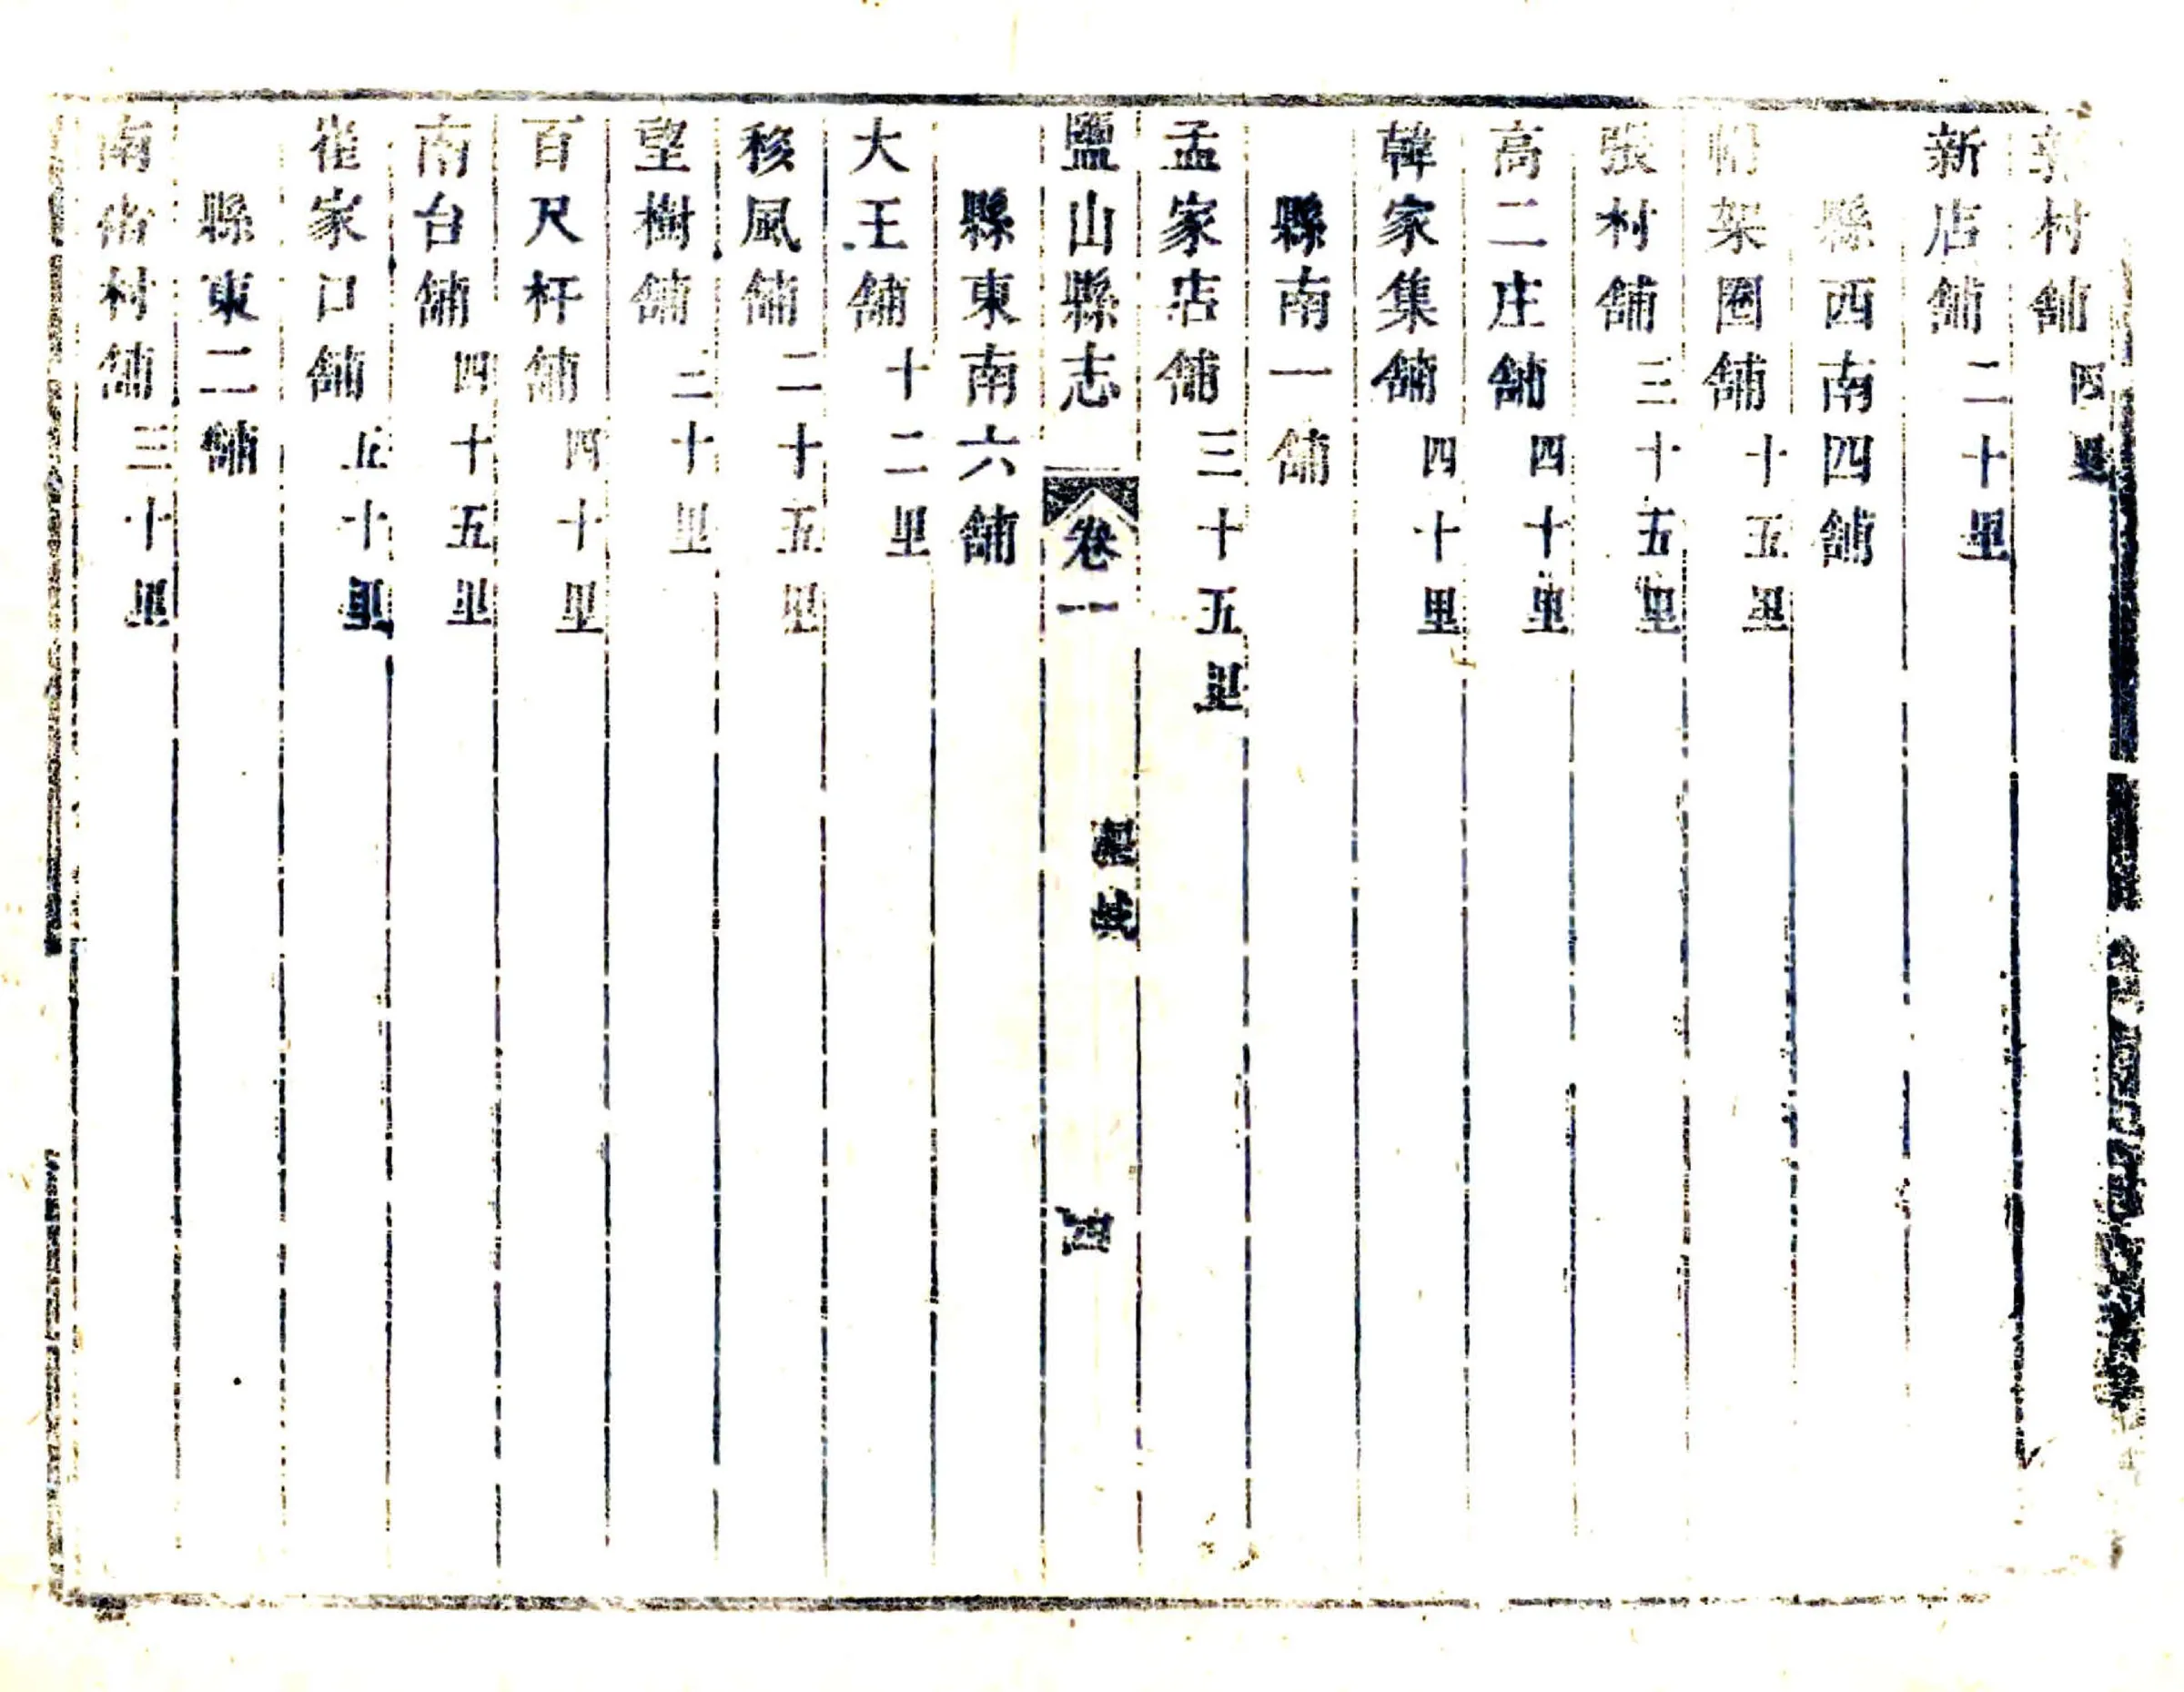 村舖 四里
新店舖 二十里
縣西南四舖
架圈舖 十五里
張村舖 三十五里
高二庄舖 四十里
韓家集舖 四十里
縣南一舖
孟家店舖 三十五里
鹽山縣志 卷一 疆域 四
縣東南六舖
大王舖 十二里
移風舖 二十五里
望樹舖 二十里
百尺杆舖 四十里
南台舖 四十五里
崔家口舖 五十里
縣東二舖
南村舖 三十里